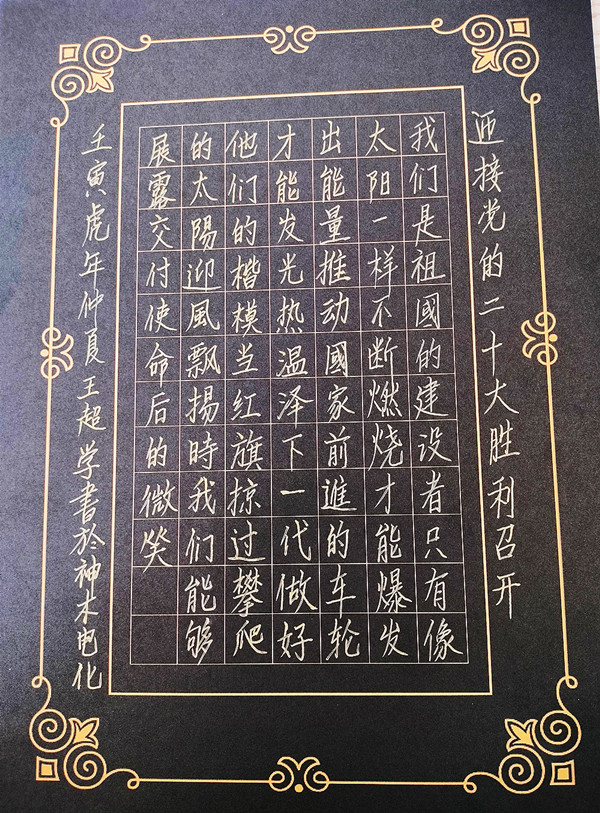 迎接党的二十大胜利召开
我们是祖國的建设者只有像
太阳一样不断燃烧才能爆发
出能量推动國家前進的车轮
才能发光热温泽下一代做好
他们的楷模当红旗掠过攀爬
的太陽迎風飘揚時我们能够
展露交付使命后的微笑
壬寅虎年仲夏王超学書於神木电化